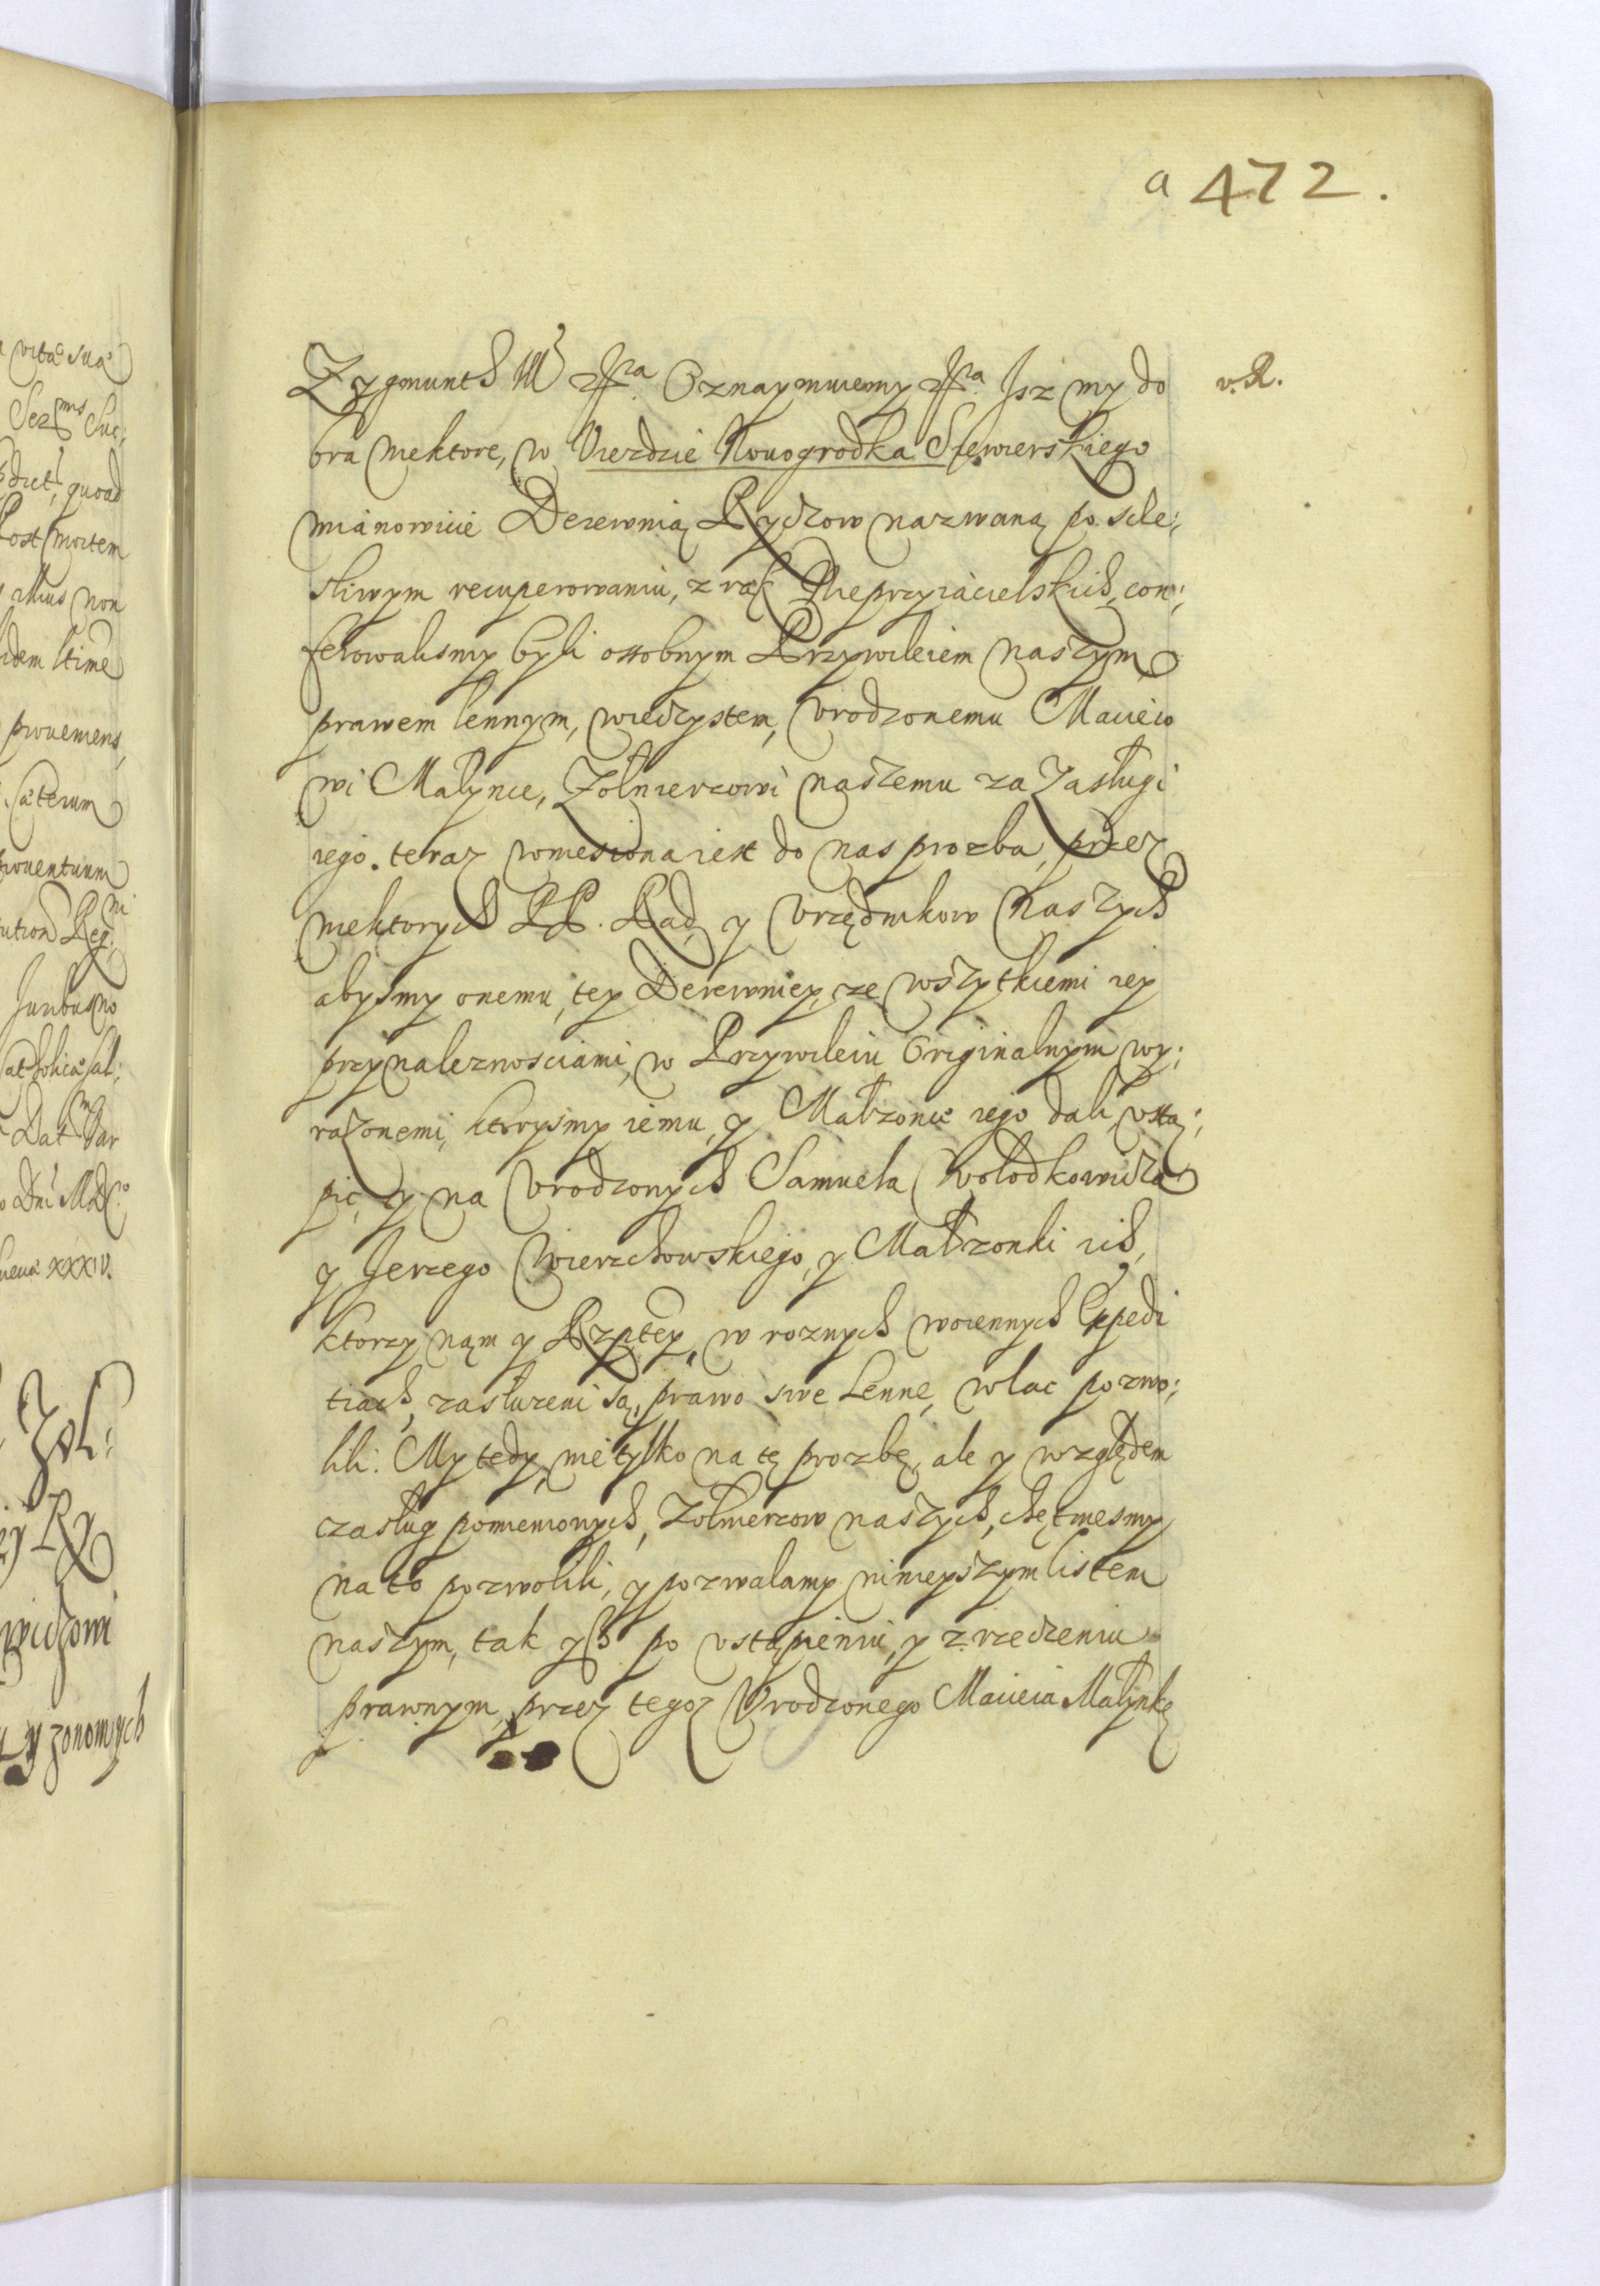 a 472.
Zygmunth III etc. Oznaymuiemy etc. Isz my do v. R.
bra niektore, w Uiezdzie Nouogrodka Siewierskiego
mianowicie Derewnią Ryczow nazwaną po scze:
sliwym recuperowaniu, z rąk Nieprzyiacielskich, con:
ferowalismy byli ossobnym Przywileiem naszym
prawem lennym, wieczystem, Urodzonemu Macieio
wi Małynce, Zołnierzowi naszemu za Zasługi
iego. teraz wniesiona iest do nas prozba, przez
niektorych PP. Rad y Urzędnikow Naszych
abysmy onemu, tey Derewniey, ze wszytkiemi iey
przynaleznosciami, w Przywileiu Originalnym wy:
razonemi, ktorysmy iemu, y Małzonce iego dali, ustą:
pic, y na Urodzonych Samuela Wołodkowicza
y Jerzego Wierzchowskiego, y Małzonki ich,
ktorzy nąm y Rzptey, w roznych woiennych Expedi
tiach, zasłuzeni są, prawo swe Lenne, wlac pozwo:
lili. My tedy, nie tylko na tę prozbę, ale y względem
zasług pomienionych, Zołnierzow naszych, chętniesmy
na to pozwolili, y pozwalamy ninieyszym listem
naszym, tak ysz po ustąpieniu, y zrzeczeniu
prawnym, przez tegoz Urodzonego Macieia Małynkę
vita sua
quoad
Post mortem
illius non
idem
prouemens
caterum
prouentuum
Juribus no
catholica sal:
Dat War
XXXIV.
Zol:
Ry
wiczowi
zonom ych